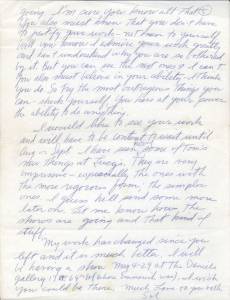 going. I'm sure you know all that.
You also must know that you don't have
to justify your work - not even to yourself.
Well you know I admire your work greatly
and can't understand why you are so bothered
by it but you can see the next ones & I can't.
You also must believe in your ability. I think
you do. So try the most outrageous things you
can - shock yourself. You have at your power
the ability to do anything.
I would like to see your work
and will have to be content to wait until
Aug or Sept. I have seen photos of some of Tom's
new things at Lucy's. They are very
impressive - especially the ones with
the more rigorous form; the simpler
ones. I guess he'll send some more
later on. Let me know how the
shows are going and that kind of
stuff.
My work has changed since you
left and it is much better. I will
be having a show May 4-29 at the Daniels
Gallery 17 E 64th St (where Emmerich was), I wish
you could be there. Much love to you both
Sol